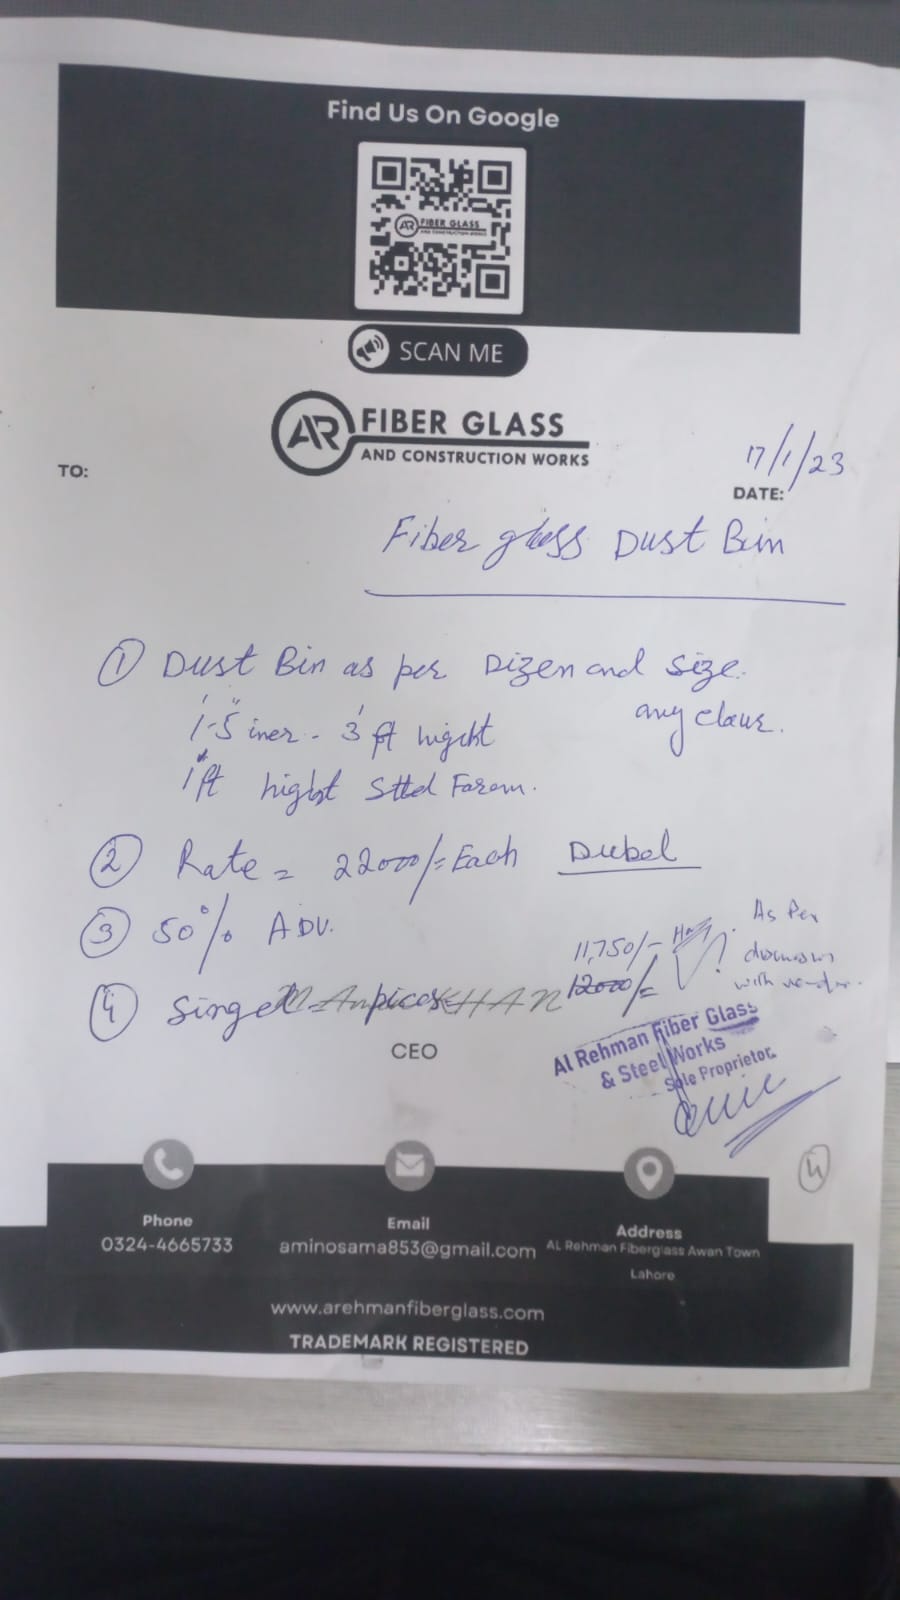 Find Us On Google
AR FIBER GLASS
SCAN ME
AR FIBER GLASS
AND CONSTRUCTION WORKS
TO:
17/1/23
DATE:
Fiber glass Dust Bin
① Dust Bin as per Dizen and Size.
1-5 iner - 3 ft hight any claur.
1 ft hight Sttd Farem.
② Rate = 22000/= Each Dubel
③ 50% ADV.
11,750/- As Per
discussion
with vendor.
④ Singel pices 12000/=
CEO
Al Rehman Fiber Glass
& Steel Works
Sole Proprietor
4
Phone
0324-4665733
Email
aminosama853@gmail.com
Address
AL Rehman Fiberglass Awan Town
Lahore
www.arehmanfiberglass.com
TRADEMARK REGISTERED